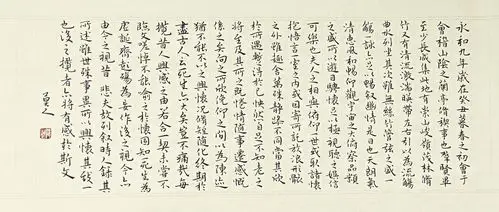 永和九年歲在癸丑暮春之初會于
會稽山陰之蘭亭脩禊事也羣賢畢
至少長咸集此地有崇山峻嶺茂林脩
竹又有清流激湍暎帶左右引以為流觴
曲水列坐其次雖無絲竹管弦之盛一
觴一詠亦足以暢敘幽情是日也天朗氣
清惠風和暢仰觀宇宙之大俯察品類
之盛所以遊目騁懷足以極視聽之娛信
可樂也夫人之相與俯仰一世或取諸懷
抱悟言一室之內或因寄所託放浪形骸
之外雖趣舍萬殊靜躁不同當其欣
於所遇暫得於己怏然自足不知老之
將至及其所之既惓情隨事遷感慨
係之矣向之所欣俛仰之間以為陳迹
猶不能不以之興懷況脩短隨化終期於
盡古人云死生亦大矣豈不痛哉每
攬昔人興感之由若合一契未嘗不
臨文嗟悼不能喻之於懷固知死生為
虛誕齊彭殤為妄作後之視今亦
由今之視昔悲夫故列敘時人錄其
所述雖世殊事異所以興懷其致一
也後之攬者亦將有感於斯文